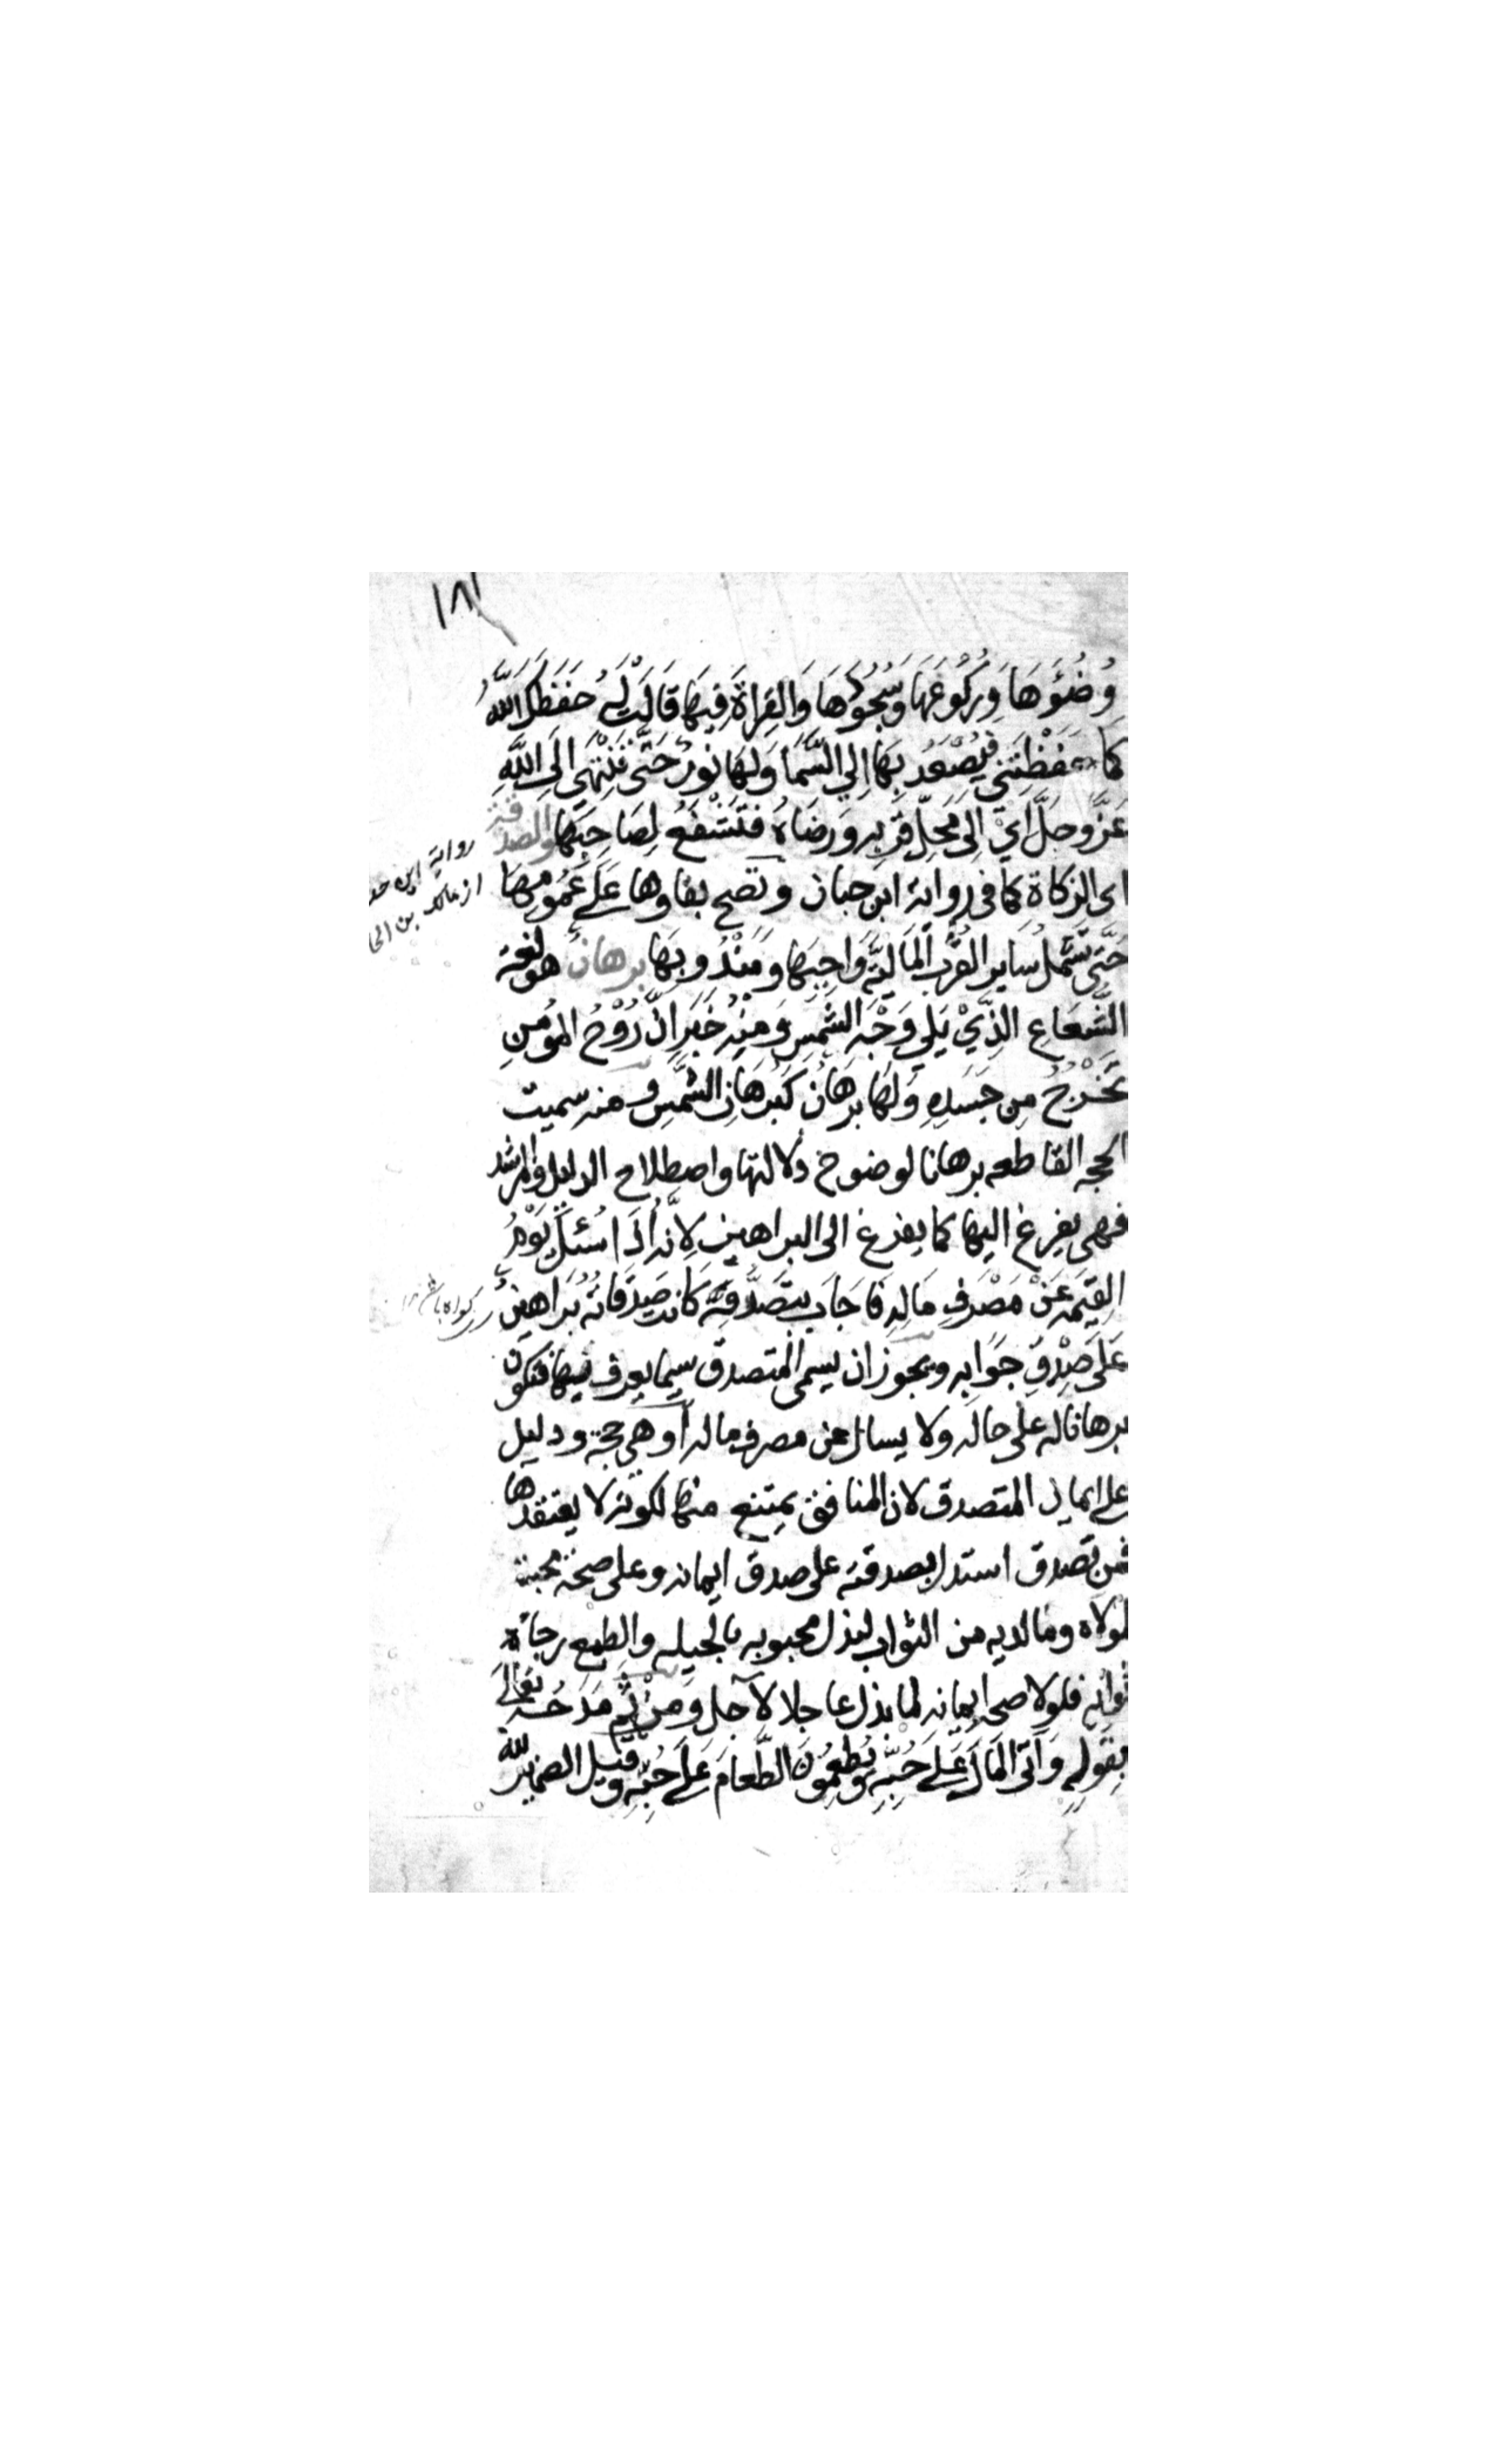 ١٨١
وُضُؤَهَا وَرُكُوعَهَا وَسُجُوْدَهَا وَالقِرَاةَ فِيهَا قَالَتْ لَهُ حَفَظَكَ اللَّهُ
كَمَا حَفَظْتَنِي فَيُصْعَدُ بِهَا اِلي السَّمَا وَلهَا نُورٌ حَتَّى تَنْتَهِي اِلَى اللَّهِ
عَزَّوجَلَّ ايْ اِلَى مَحَلِّ قُرْبِهِ وَرِضَاهُ فَتَشْفَعُ لِصَاحِبِهَا والصدقة
اى الزكاة كما فى رواية ابن حبان وتصح بقاوها عَلَى عُمُومِهَا
حَتَّى تَشْمَلَ سَايرَ القُرَبِ المَاليَّةِ وَاجِبِهَا ومَنْدُوبِهَا برهان هو لغة
الشُّعَاعِ الَّذِيْ يَلِي وَجْهَ الشَّمْسِ وَمِنْهُ خَبَرِ انَّ رُوْحَ المُؤْمِنِ
تَخْرُجُ مِن جَسَدِهِ وَلهَا بُرهَانٌ كَبُرهَانِ الشَّمْسِ ومنه سميت
الحجه القاطعه برهانا لوضوح دلالتها واصطلاح الدليل والمرشد
فهى يفزع اليها كما يفزع الى البراهين لِانَّهُ اِذَا سُئِلَ يَوْمَ
القِيَمَةِ عَنْ مَصْرَفِ مَالِهِ فَاجَابَ بِتَصَدُّقِهِ كَانت صَدَقَاتُهُ بَرَاهِينُ
عَلَى صِدْقِ جَوَابِه ويجوز ان يسمى المتصدق سيما يعرف فيها فتكون
برهانا له على حاله ولا يسال عن مصرف ماله أو هى حجة ودليل
على ايمان المتصدق لان المنافق يمتنع منها لكونه لا يعتقدها
فمن تصدق استدل بصدقته على صدق ايمانه وعلى صحة محبته
لمولاه وما لديه من الثواب لبذل محبوبه بالجبله والطمع رجاة
ثوابه فلولا صحة ايمانه لما بذل عاجلا لآجل وَمِنْ ثَم مَدَحَهُ تعَالَى
بِقَولِهِ وَآتَى المَالَ عَلَى حُبِّهِ وَيُطْعِمُونَ الطَّعَامَ عَلَى حُبِّهِ وقيل الضمير لله
رواية ابن
از مالك بن